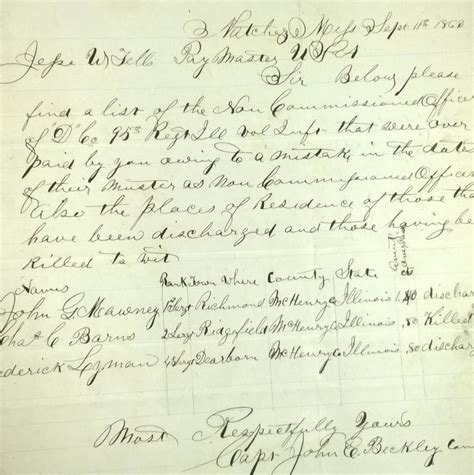 Natchez Miss Sept 11th 186
Jesse W Fell Pay Master U S A
Sir Below please
find a list of the Non Commissioned Officer
of D" Co 95th Regt Ill Vol Inft that were over
paid by you owing to a mistake in the date
of their muster as Non Commissioned Officer
Also the places of Residence of those tha
have been discharged and those having be
Killed to wit
Names Rank Town Where County State
John G Mawney 1st Sergt Richmond McHenry Co Illinois 1.40 dischar
Chas C Barns 2 Sergt Ridgefield McHenry Co Illinois .80 Killed
ederick Lozman 4 Sergt Dearborn McHenry Co Illinois .80 dischar
Most Respectfully Yours
Capt John E Beckley Com